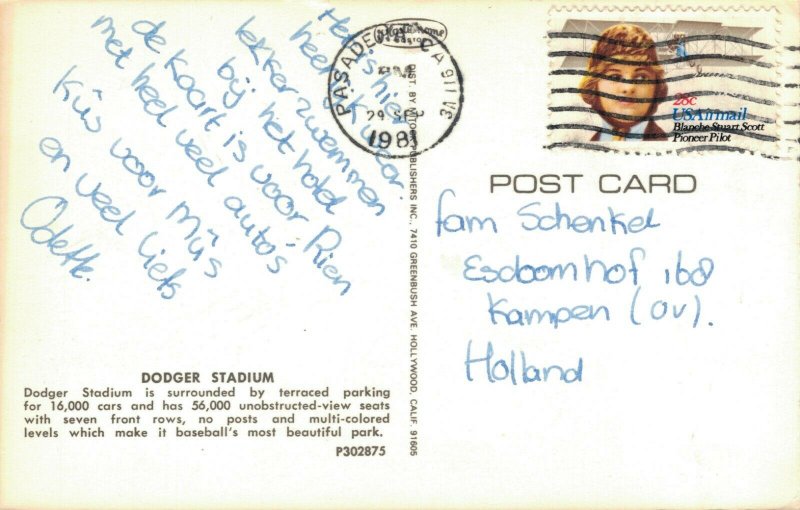 Het is hier
heel k u daar.
lekker zwemmen
bij het hotel
de kaart is voor Rien
met heel veel auto's
Kûs voor mûs
en veel liefs
Odette.
PASADENA CA 911
29 SEP
1981
28c
USAirmail
Blanche Stuart Scott
Pioneer Pilot
POST CARD
fam Schenkel
Esdoornhof 168
Kampen (ov).
Holland
DIST. BY MITOCK PUBLISHERS INC., 7410 GREENBUSH AVE. HOLLYWOOD, CALIF. 91605
DODGER STADIUM
Dodger Stadium is surrounded by terraced parking
for 16,000 cars and has 56,000 unobstructed-view seats
with seven front rows, no posts and multi-colored
levels which make it baseball's most beautiful park.
P302875